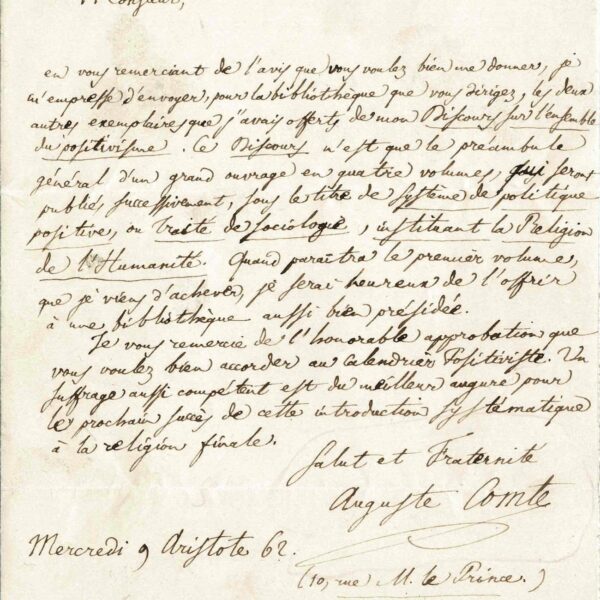 Monsieur,
en vous remerciant de l'avis que vous voulez bien me donner, je
m'empresse d'envoyer, pour la bibliothèque que vous dirigez, les deux
autres exemplaires que j'avais offerts de mon Discours sur l'ensemble
du positivisme. Ce Discours n'est que le préambule
général d'un grand ouvrage en quatre volumes, qui seront
publiés successivement, sous le titre de Système de politique
positive, ou Traité de sociologie, instituant la Religion
de l'Humanité. Quand paraîtra le premier volume,
que je viens d'achever, je serai heureux de l'offrir
à une bibliothèque aussi bien présidée.
Je vous remercie de l'honorable approbation que
vous voulez bien accorder au Calendrier Positiviste. Un
suffrage aussi compétent est du meilleur augure pour
le prochain succès de cette introduction systématique
à la religion finale.
Salut et Fraternité
Auguste Comte
Mercredi 9 Aristote 62.
(10, rue M. le Prince.)